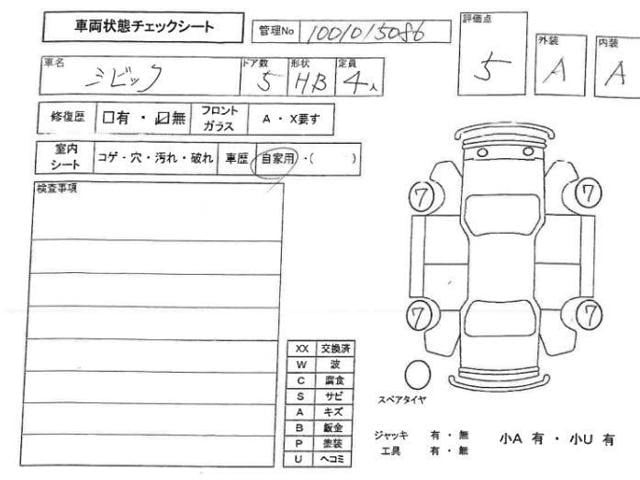 車両状態チェックシート
管理No 1001015086
評価点 5
外装 A
内装 A
車名 シビック
ドア数 5
形状 HB
定員 4人
修復歴 □有・☑無
フロントガラス A・X要す
室内シート コゲ・穴・汚れ・破れ
車歴 自家用・( )
検査事項
7 7
7 7
XX 交換済
W 波
C 腐食
S サビ
A キズ
B 鈑金
P 塗装
U ヘコミ
スペアタイヤ
ジャッキ 有・無
工具 有・無
小A 有・小U 有